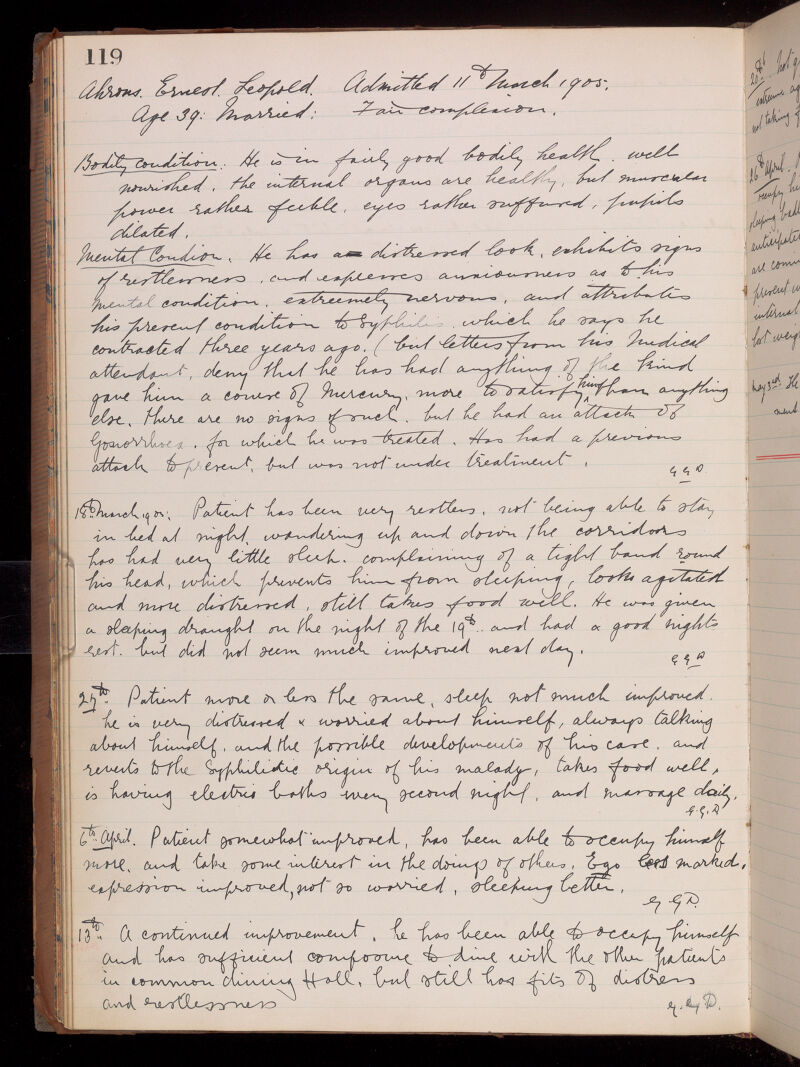 119
Ahrons. Ernest. Leopold. Admitted 11th March 1905.
Age 39: Married: Fair complexion.
Bodily condition. He is in fairly good bodily health. well
nourished. the internal organs are healthy. but muscular
power rather feeble. eyes rather suffused. pupils
dilated.
Mental Condion. He has a distressed look. exhibits signs
of restlessness. and expresses anxiousness as to his
mental condition. extreemely nervous. and attributes
his present condition to Syphilis. which he says he
contracted three years ago. (but letters from his Medical
attendant, deny that he has had anything of the kind
gave him a course of Mercury, more to satisfy him than anything
else. there are no signs of such. but he had an attack of
Gonorrhoea. for which he was treated. Has had a previous
attack to present, but was not under treatment.
G G D.
18th March 1905. Patient has been very restless, not being able to stay
in bed at night, wandering up and down the corridors
has had very little sleep. complaining of a tight band round
his head, which prevents him from sleeping, looks agitated
and more distressed, still takes food well. He was given
a sleeping draught on the night of the 19th. and had a good nights
rest. but did not seem much improved next day.
G G D
27th. Patient more or less the same, sleep not much improved.
he is very distressed & worried about himself, always talking
about himself. and the possible developments of his case. and
reverts to the Syphilidic origin of his malady, takes food well,
is having electric baths every second night. and massage daily.
G.G.D
6th April. Patient somewhat improved, has been able to occupy himself
more. and take some interest in the doings of others. Ego less marked.
expression improved, not so worried, sleeping better.
G G D.
13th. A continued improvement. he has been able to occupy himself
and has sufficient composure to dine with the other patients
in common dining Hall. but still has fits of distress
and restlessness
G. G D.
20th
not taking
26th April.
occupy
sleeping
are
prevent
internal
lost weig
May 3rd. He